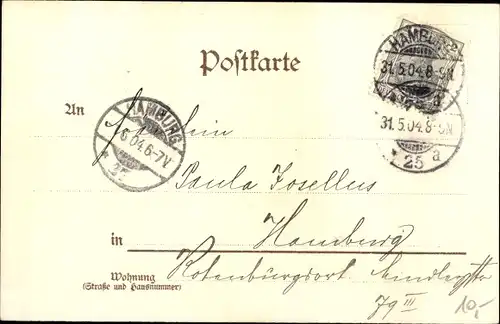 Postkarte
HAMBURG
31.5.04.8-9N
a
31.5.04.8-9N
* 25 a
An
HAMBURG
6.04.6-7V
* 25
Fräulein
Paula Josellus
in Hamburg
Wohnung
(Straße und Hausnummer)
Rotenburgsort
79 III
10,-